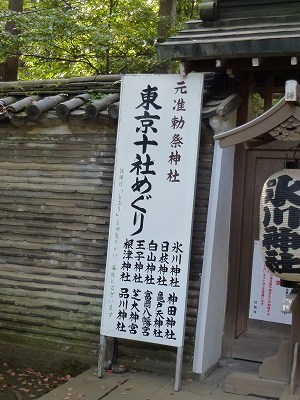 元准勅祭神社
東京十社めぐり
氷川神社
日枝神社
白山神社
王子神社
根津神社
神田神社
亀戸天神社
富岡八幡宮
芝大神宮
品川神社
氷川神社